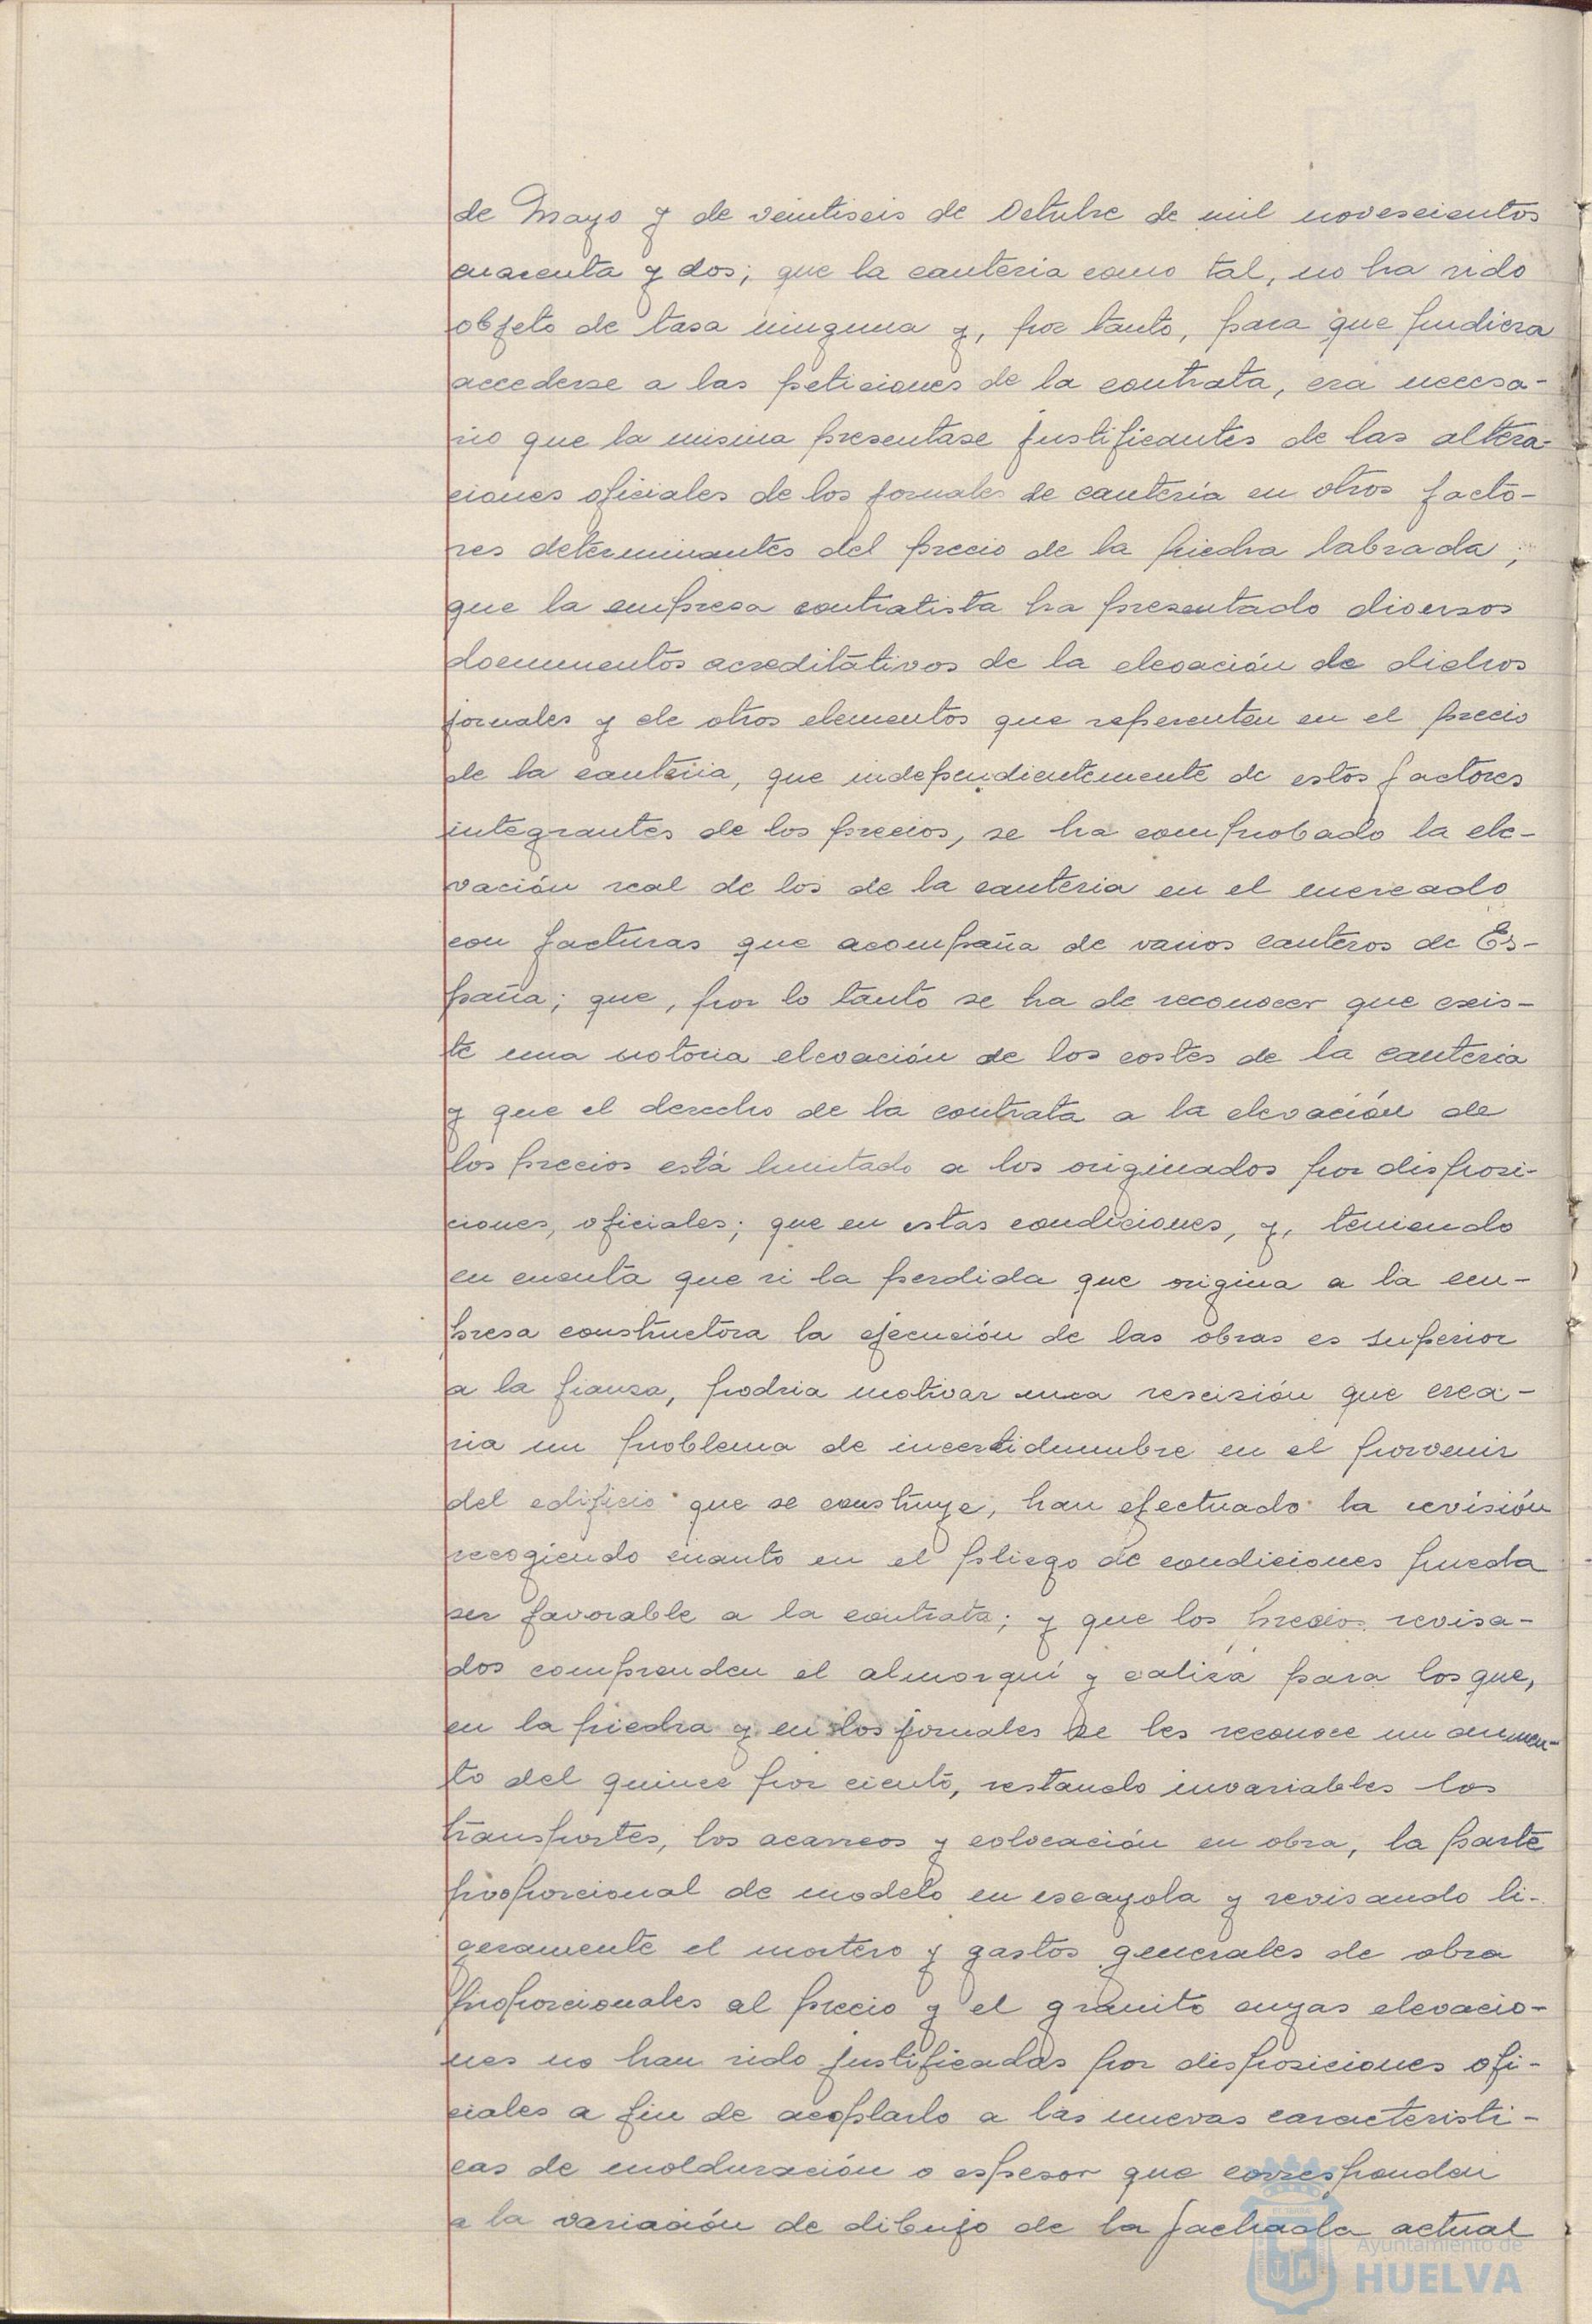 de Mayo y de veintiseis de Octubre de mil novescientos
cuarenta y dos; que la canteria como tal, no ha sido
objeto de tasa ninguna y, por tanto, para que pudiera
accederse a las peticiones de la contrata, era necesa-
rio que la misma presentase justificantes de las altera-
ciones oficiales de los jornales de cantería en otros facto-
res determinantes del precio de la piedra labrada;
que la empresa contratista ha presentado diversos
documentos acreditativos de la elevación de dichos
jornales y de otros elementos que reperenten en el precio
de la canteria, que independientemente de estos factores
integrantes de los precios, se ha comprobado la ele-
vación real de los de la canteria en el mercado
con facturas que acompaña de varios canteros de Es-
paña; que, por lo tanto se ha de reconocer que exis-
te una notoria elevación de los costes de la canteria
y que el derecho de la contrata a la elevación de
los precios está limitado a los originados por disposi-
ciones, oficiales; que en estas condiciones, y, teniendo
en cuenta que si la perdida que origina a la em-
presa constructora la ejecución de las obras es superior
a la fianza, podria motivar una rescisión que crea-
ria un problema de incertidumbre en el porvenir
del edificio que se construye, han efectuado la revisión
recogiendo cuanto en el pliego de condiciones pueda
ser favorable a la contrata; y que los precios revisa-
dos comprenden el almorquí y caliza para los que,
en la piedra y en los jornales se les reconoce un aumen-
to del quince por ciento, restando invariables los
transportes, los acarreos y colocación en obra, la parte
proporcional de modelo en escayola y revisando li-
geramente el mortero y gastos generales de obra
proporcionales al precio y el granito cuyas elevacio-
nes no han sido justificadas por disposiciones ofi-
ciales a fin de acoplarlo a las nuevas caracteristi-
cas de molduración o espesor que correspondan
a la variación de dibujo de la fachada actual
Ayuntamiento de
HUELVA